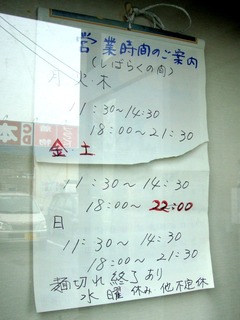 営業時間のご案内
(しばらくの間)
月 火・木
11:30~14:30
18:00~21:30
金 土
11:30~14:30
18:00~22:00
日
11:30~14:30
18:00~21:30
麺切れ終了あり
水曜休み 他不定休
本
CD